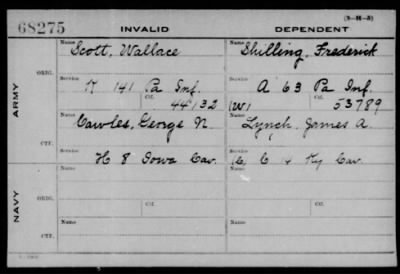 (3-H-3)
68275 INVALID DEPENDENT
Name Scott, Wallace Name Shilling, Frederick
ARMY
ORIG.
Service K 141 Pa Inf. Service A 63 Pa Inf.
Ctf. 44132 (W) Ctf. 53789
Name Cawles, George N. Name Lynch, James A.
CTF.
Service H 8 Iowa Cav. Service (C C 4 Ky Cav.
NAVY
Name Name
ORIG.
Ctf. Ctf.
Name Name
CTF.